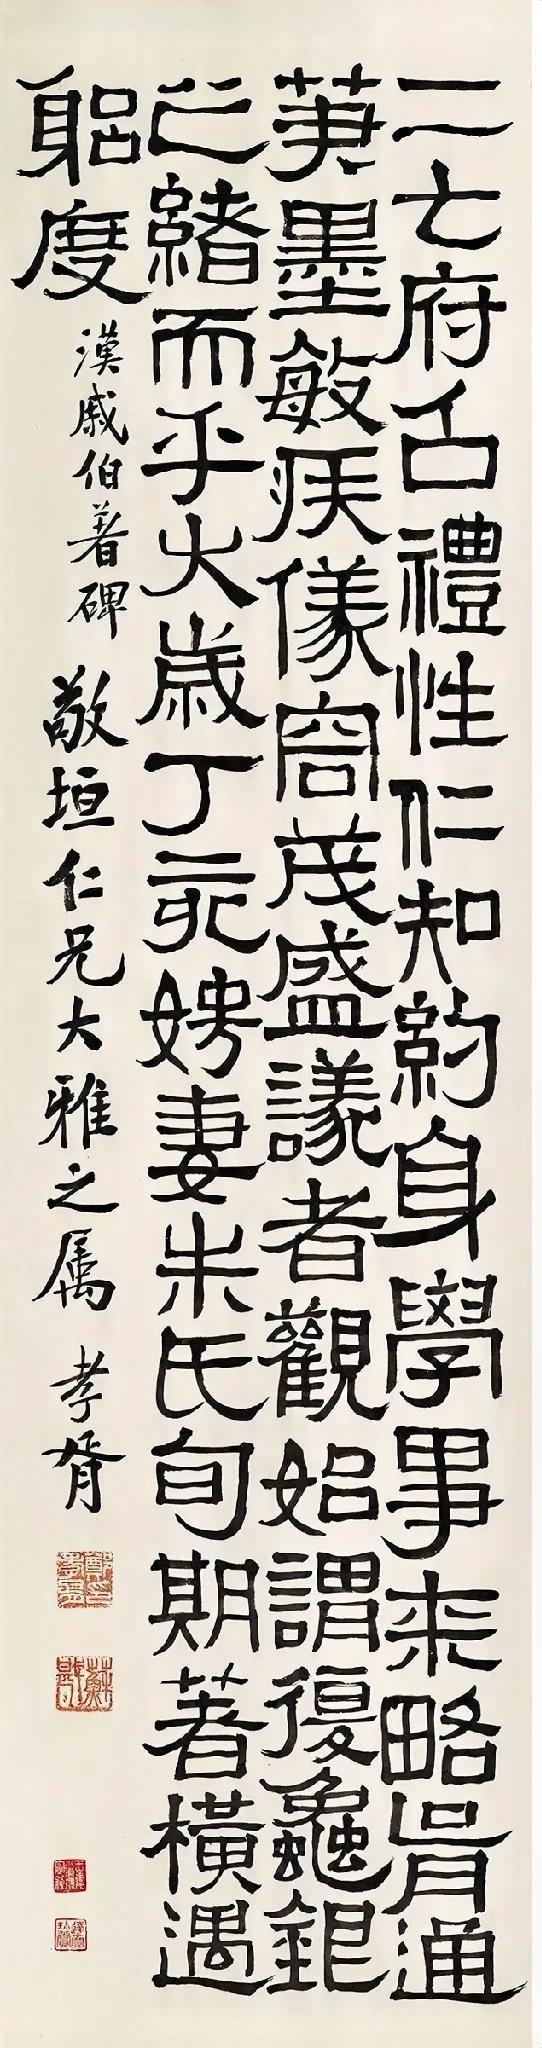 二亡府召禮性仁知約身學事来略胥通
筭墨敏疾儀容茂盛議者觀始謂復龜銀
之緒而乎大歲丁亥娉妻朱氏旬期著橫遇
躳度
漢戚伯著碑 敬垣仁兄大雅之属 孝胥